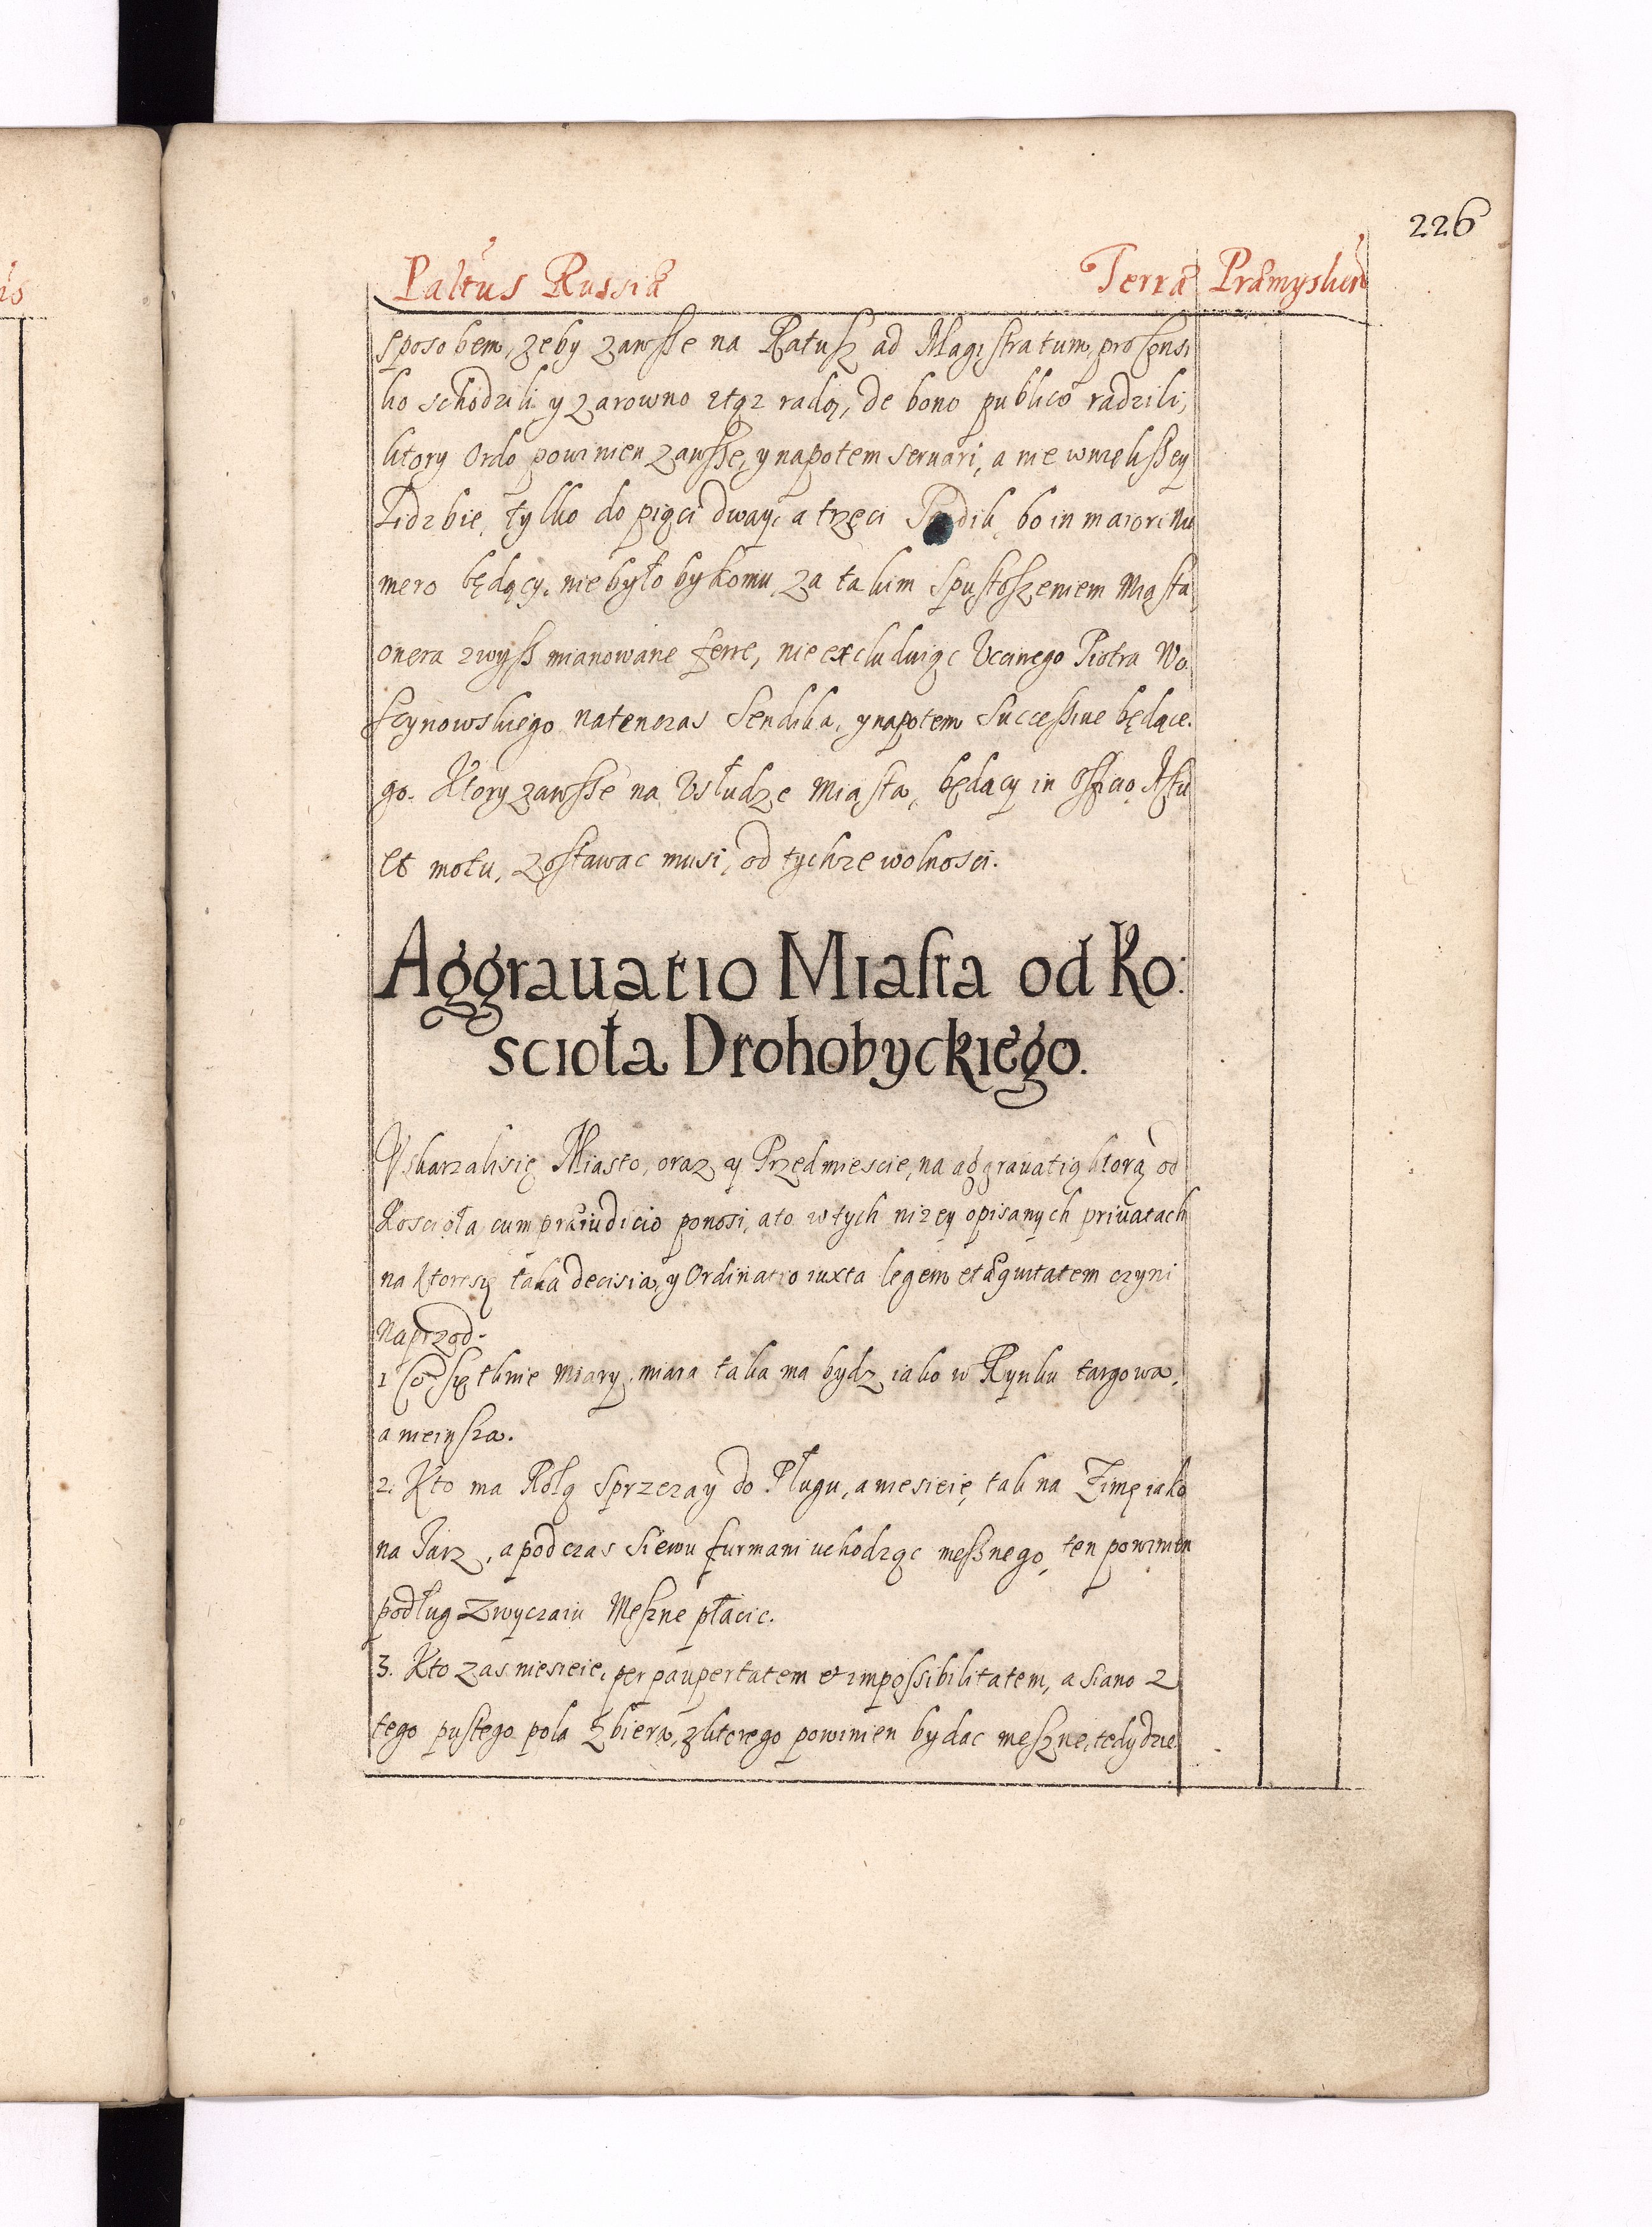 226
Paltus Russiæ Terræ Præmysliens
sposobem, zeby zawsse na Ratusz ad Magistratum, pro consi
lio schodzili y zarowno z tąz radą, de bono publico radzili,
ktory Ordo powinien zawsse, y napotem seruari, a nie w wielkssey
Lidzbie, tylko do pięci dway, a trzeci bo in maiori nu
mero będący, nie było by komu, za takim spustoszeniem Miasta,
onera zwyss mianowane ferre, nie excluduiąc Vccinego Piotra Wo
scynowskiego natenczas Sendika, y napotem Successiue będące.
go. Ktory zawsse na Vsłudze Miasta, będący in Officio
et motu, zostawac musi, od tychze wolnosci.
Aggrauatio Miasta od Ko:
scioła Drohobyckiego.
Vskarzalisię Miasto, oraz y Przedmiescie, na aggrauatią ktorą od
Koscioła, cum præiudicio ponosi, a to w tych nizey opisanych priuatach
na ktoresię taka decisia, y Ordinatio iuxta legem et æquitatem czyni
Naprzod.
1 Co się tknie miary, miara taka ma bydz iako w Rynku targowa,
a mieinsza.
2. Kto ma Rolą sprzezay do Pługu, a niesieię, tak na Zimę iako
na Jarz, a podczas siewu furmani uchodząc messnego, ten powinien
podług zwyczaiu Meszne płacic.
3. Kto zas niesieie, per paupertatem et impossibilitatem, a siano z
tego pustego pola zbiera, z ktorego powinien by dac meszne, tedy dzie